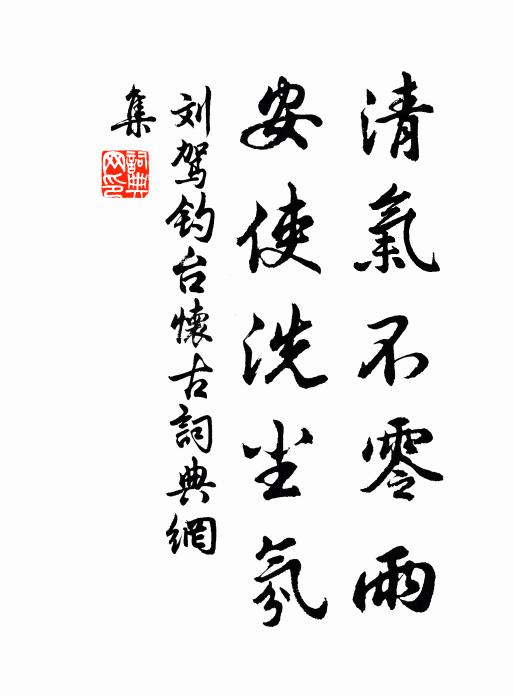 清氣不零雨
安使洗尘氛
刘駕钓台懷古詞典網
集
詞典
网印